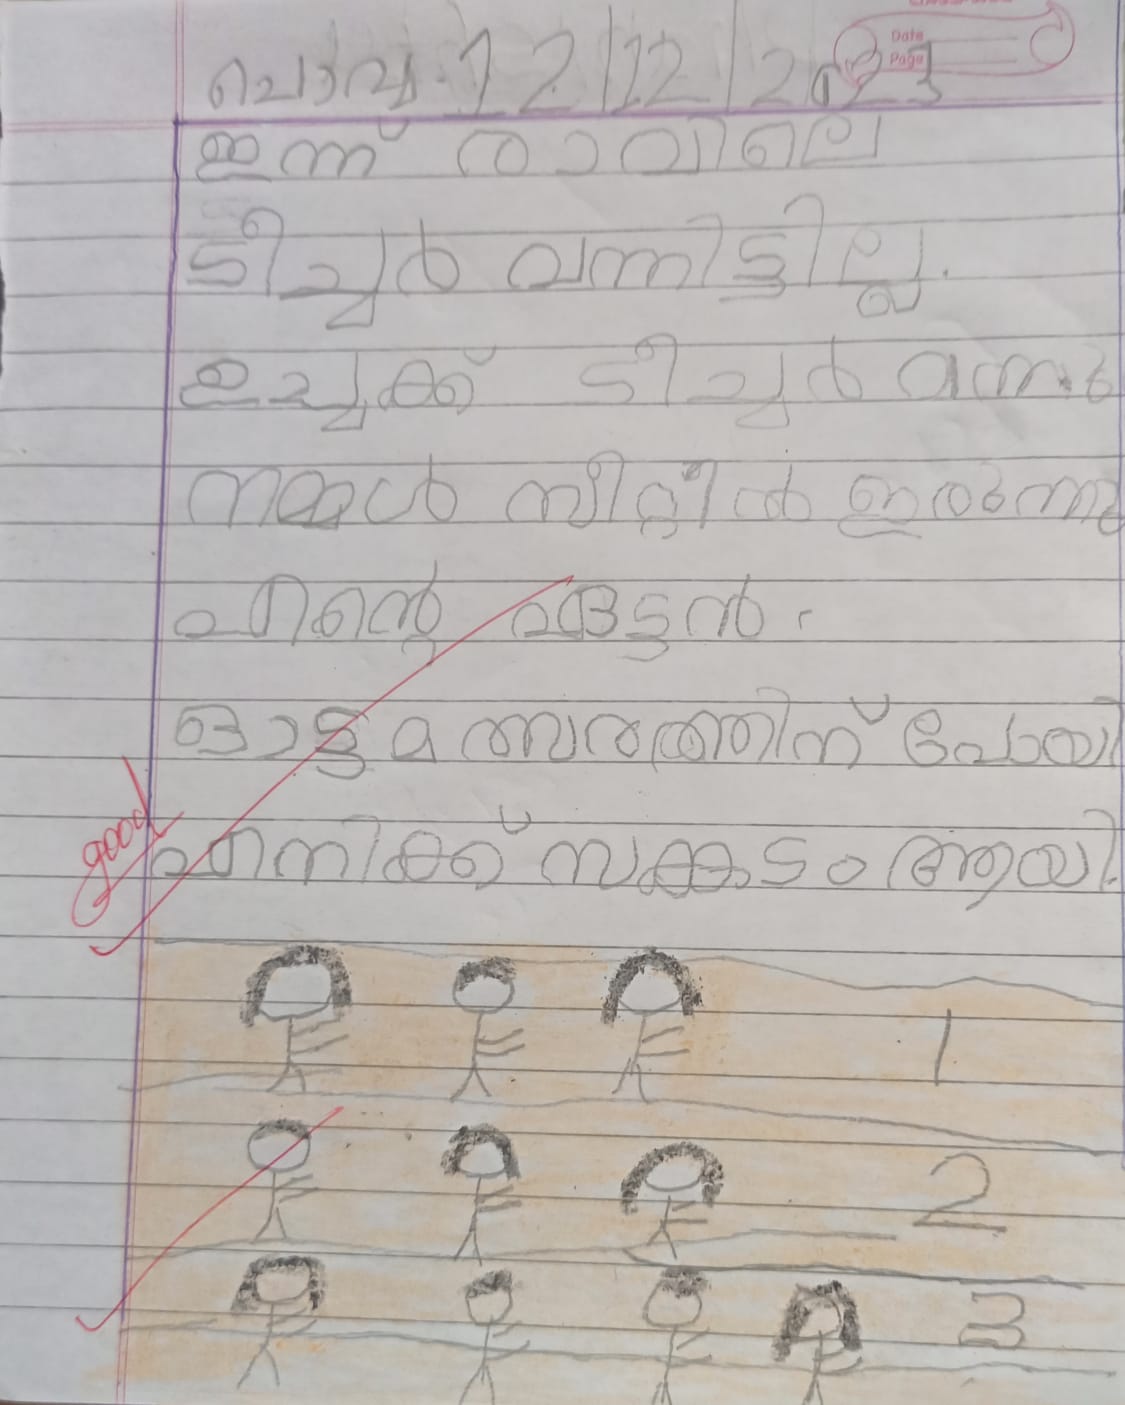 Date
Page
ചൊവ്വ 12/12/2023
ഇന്ന് രാവിലെ
ടീച്ചർ വന്നിട്ടില്ല.
ഉച്ചക്ക് ടീച്ചർ വന്നു
നമ്മൾ സീറ്റിൽ ഇരുന്നു
എന്റെ ഏട്ടൻ.
ഓട്ടമത്സരത്തിന് പോയി
good
എനിക്ക് സങ്കടം ആയി.
1
2
3